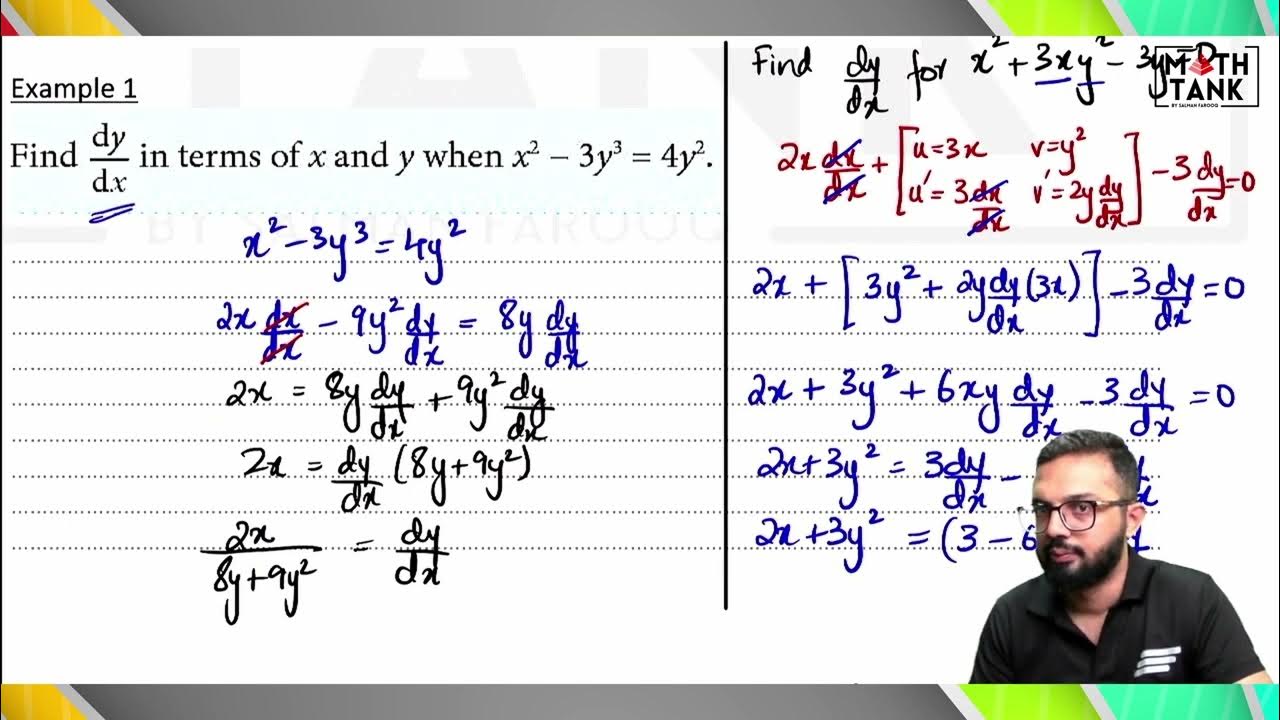 Example 1
Find dy/dx in terms of x and y when x² − 3y³ = 4y².
x² − 3y³ = 4y²
2x dx/dx − 9y² dy/dx = 8y dy/dx
2x = 8y dy/dx + 9y² dy/dx
2x = dy/dx (8y + 9y²)
2x/(8y + 9y²) = dy/dx
Find dy/dx for x² + 3xy² − 3y
MATH
TANK
BY SALMAN FAROOQ
2x dx/dx + [u = 3x v = y²
u' = 3 dx/dx v' = 2y dy/dx] − 3 dy/dx = 0
2x + [3y² + 2y dy/dx (3x)] − 3 dy/dx = 0
2x + 3y² + 6xy dy/dx − 3 dy/dx = 0
2x + 3y² = 3 dy/dx −
2x + 3y² = (3 − 6
BY SALMAN FAROOQ